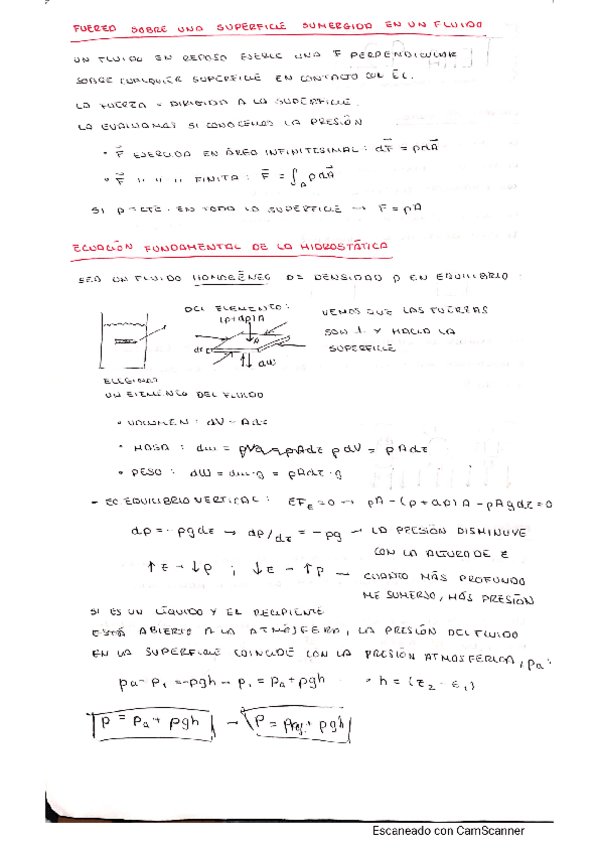 FUERZA SOBRE UNA SUPERFICIE SUMERGIDA EN UN FLUIDO
UN FLUIDO EN REPOSO EJERCE UNA F PERPENDICULAR
SOBRE CUALQUIER SUPERFICIE EN CONTACTO CON ÉL.
LA FUERZA DIRIGIDA A LA SUPERFICIE.
LA EVALUAMOS SI CONOCEMOS LA PRESIÓN
• F⃗ EJERCIDA EN ÁREA INFINITESIMAL: dF⃗ = pdA⃗
• F⃗ " " " FINITA: F⃗ = ∫A pdA⃗
SI p = CTE. EN TODA LA SUPERFICIE → F = pA
ECUACIÓN FUNDAMENTAL DE LA HIDROSTÁTICA
SEA UN FLUIDO HOMOGÉNEO DE DENSIDAD ρ EN EQUILIBRIO
DCL ELEMENTO:
(p+dp)A
VEMOS QUE LAS FUERZAS
SON ⊥ Y HACIA LA
SUPERFICIE
dz
dw
ELEGIMOS
UN ELEMENTO DEL FLUIDO
• VOLUMEN: dV = Adz
• MASA: dm = ρdV = ρAdz
• PESO: dW = dm·g = ρAdz·g
- EC. EQUILIBRIO VERTICAL: ΣFz = 0 → pA - (p + dp)A - ρAgdz = 0
dp = -ρgdz → dp/dz = -ρg - LA PRESIÓN DISMINUYE
CON LA ALTURA DE z
↑z - ↓p ; ↓z - ↑p - CUANTO MÁS PROFUNDO
ME SUMERJO, MÁS PRESIÓN
SI ES UN LÍQUIDO Y EL RECIPIENTE
ESTÁ ABIERTO A LA ATMÓSFERA, LA PRESIÓN DEL FLUIDO
EN LA SUPERFICIE COINCIDE CON LA PRESIÓN ATMOSFÉRICA, pa:
pa - p1 = -ρgh → p1 = pa + ρgh • h = (z2 - z1)
p = pa + ρgh → p = + ρgh
Escaneado con CamScanner